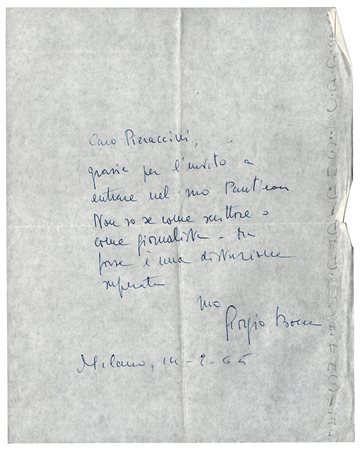 Caro Pieraccini,
grazie per l'invito a
entrare nel suo Pantheon
Non so se come scrittore o
come giornalista. Ma
forse è una distinzione
superata
suo
Giorgio Bocca
Milano, 14-2-65